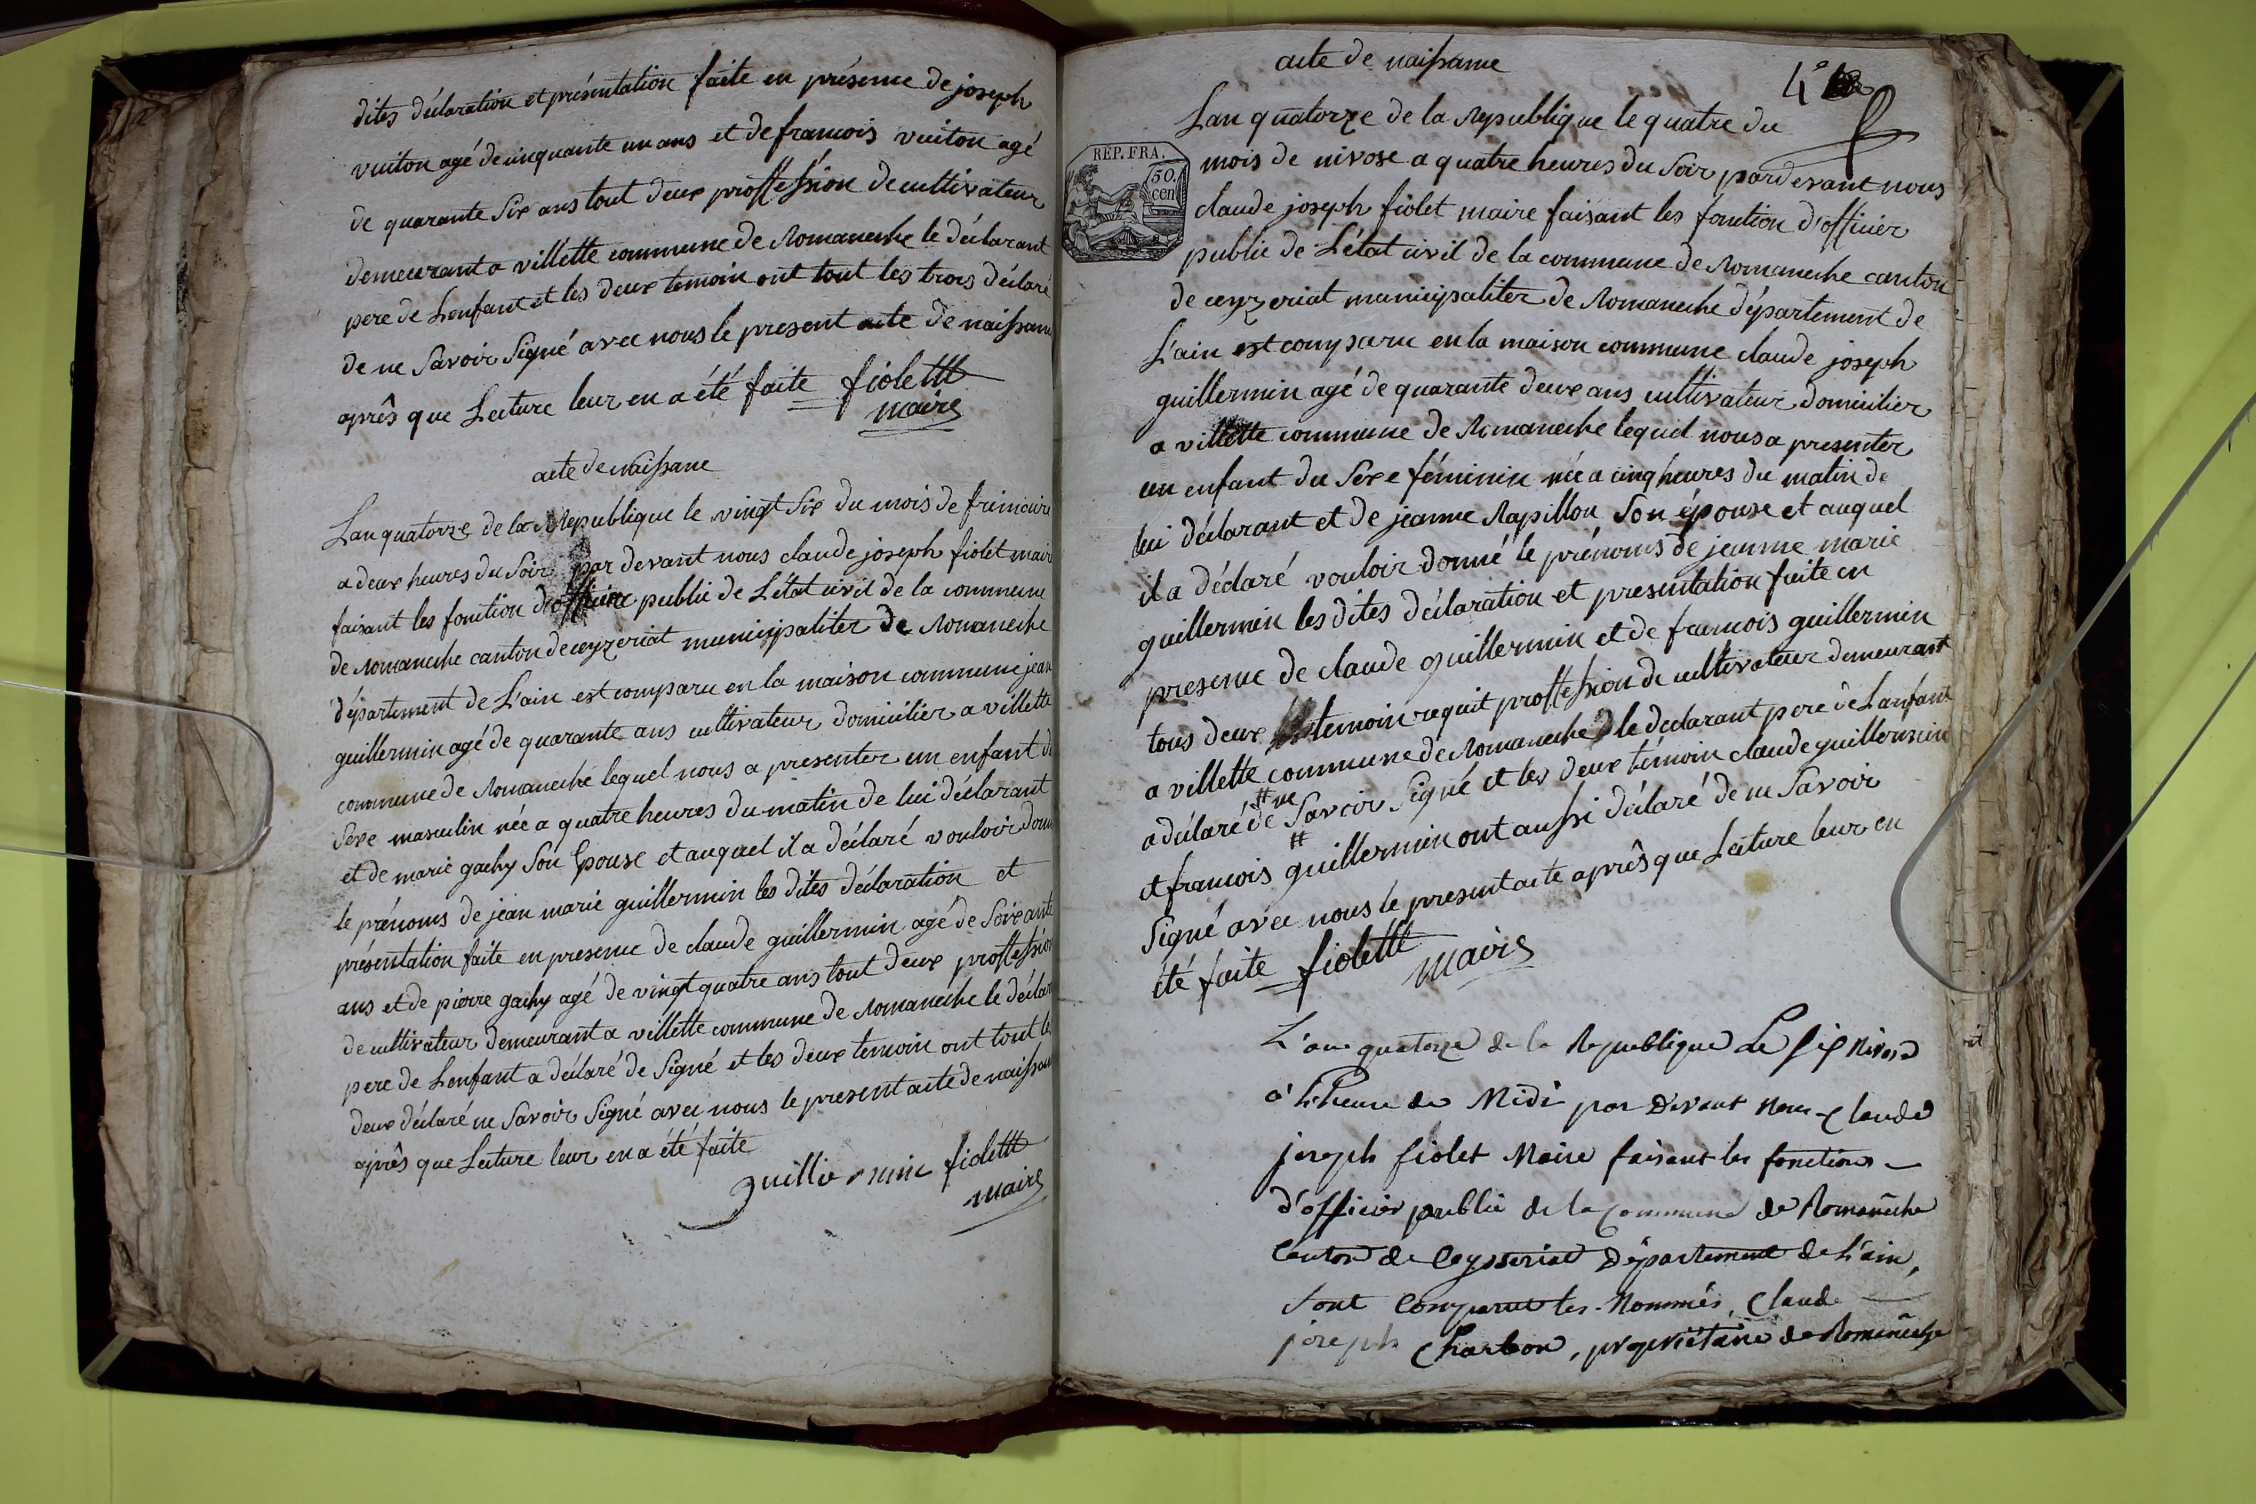 dites déclaration et présentation faite en présence de joseph
vuiton agé de cinquante un ans et de francois vuiton agé
de quarante six ans tout deux proffession de cultivateur
demeurant a villette commune de Romaneche le déclarant
pere de Lenfant et les deux temoin ont tout les trois déclaré
de ne Savoir Signé avec nous le present acte de naissance
après que Lecture leur en a été faite fiolett
maire
acte de naissance
Lan quatorze de la Republique le vingt Six du mois de frimaire
a deux heures du Soir par devant nous claude joseph fiolet maire
faisant les fonction d'officier public de L'état civil de la commune
de Romaneche canton de ceyzeriat municipaliter de Romaneche
département de L'ain est comparu en la maison commune jean
guillermin agé de quarante ans cultivateur domicilier a villette
commune de Romaneche lequel nous a presenter un enfant du
Sexe masculin née a quatre heures du matin de lui déclarant
et de marie gachy Son Epouse et auquel il a déclaré vouloir donné
le prénoms de jean marie guillermin les dites déclaration et
présentation faite en presence de claude guillermin agé de Soixante
ans et de pierre gachy agé de vingt quatre ans tout deux proffession
de cultivateur demeurant a villette commune de Romaneche le déclarant
pere de Lenfant a déclaré de Signé et les deux temoin ont tout les
deux déclaré ne Savoir Signé avec nous le present acte de naissance
après que Lecture leur en a été faite
guillermin fiolett
maire
acte de naissance
4e
Lan quatorze de la Republique le quatre du
REP. FRA.
50.
cen
mois de nivose a quatre heures du Soir pardevant nous
claude joseph fiolet maire faisant les fonction d'officier
public de L'état civil de la commune de Romaneche canton
de ceyzeriat municipaliter de Romaneche département de
L'ain est comparu en la maison commune claude joseph
guillermin agé de quarante deux ans cultivateur domicilier
a villette commune de Romaneche lequel nous a presenter
un enfant du Sexe féminin née a cinq heures du matin de
lui déclarant et de jeanne Rapillon Son épouse et auquel
il a déclaré vouloir donné le prénoms de jeanne marie
guillermin les dites déclaration et presentation faite en
presence de claude guillermin et de francois guillermin
tous deux temoin requit proffession de cultivateur demeurant
a villette commune de Romaneche le declarant pere de Lanfant
# ne
a déclaré de Savoir Signé et les deux témoin claude guillermin
#
et francois guillermin ont aussi déclaré de ne Savoir
Signé avec nous le present acte après que Lecture leur en
été faite fiolett
maire
L'an quatorze de la Republique Le six Nivose
à L'heure de Midi par Devant Nous Claude
joseph fiolet Maire faisant les fonctions
d'officier public de la Commune de Romanêche
Canton de Ceysseriat Département de L'ain,
Sont Comparut les Nommés, Claude
joseph Charbon, propriétaire de Romanêche